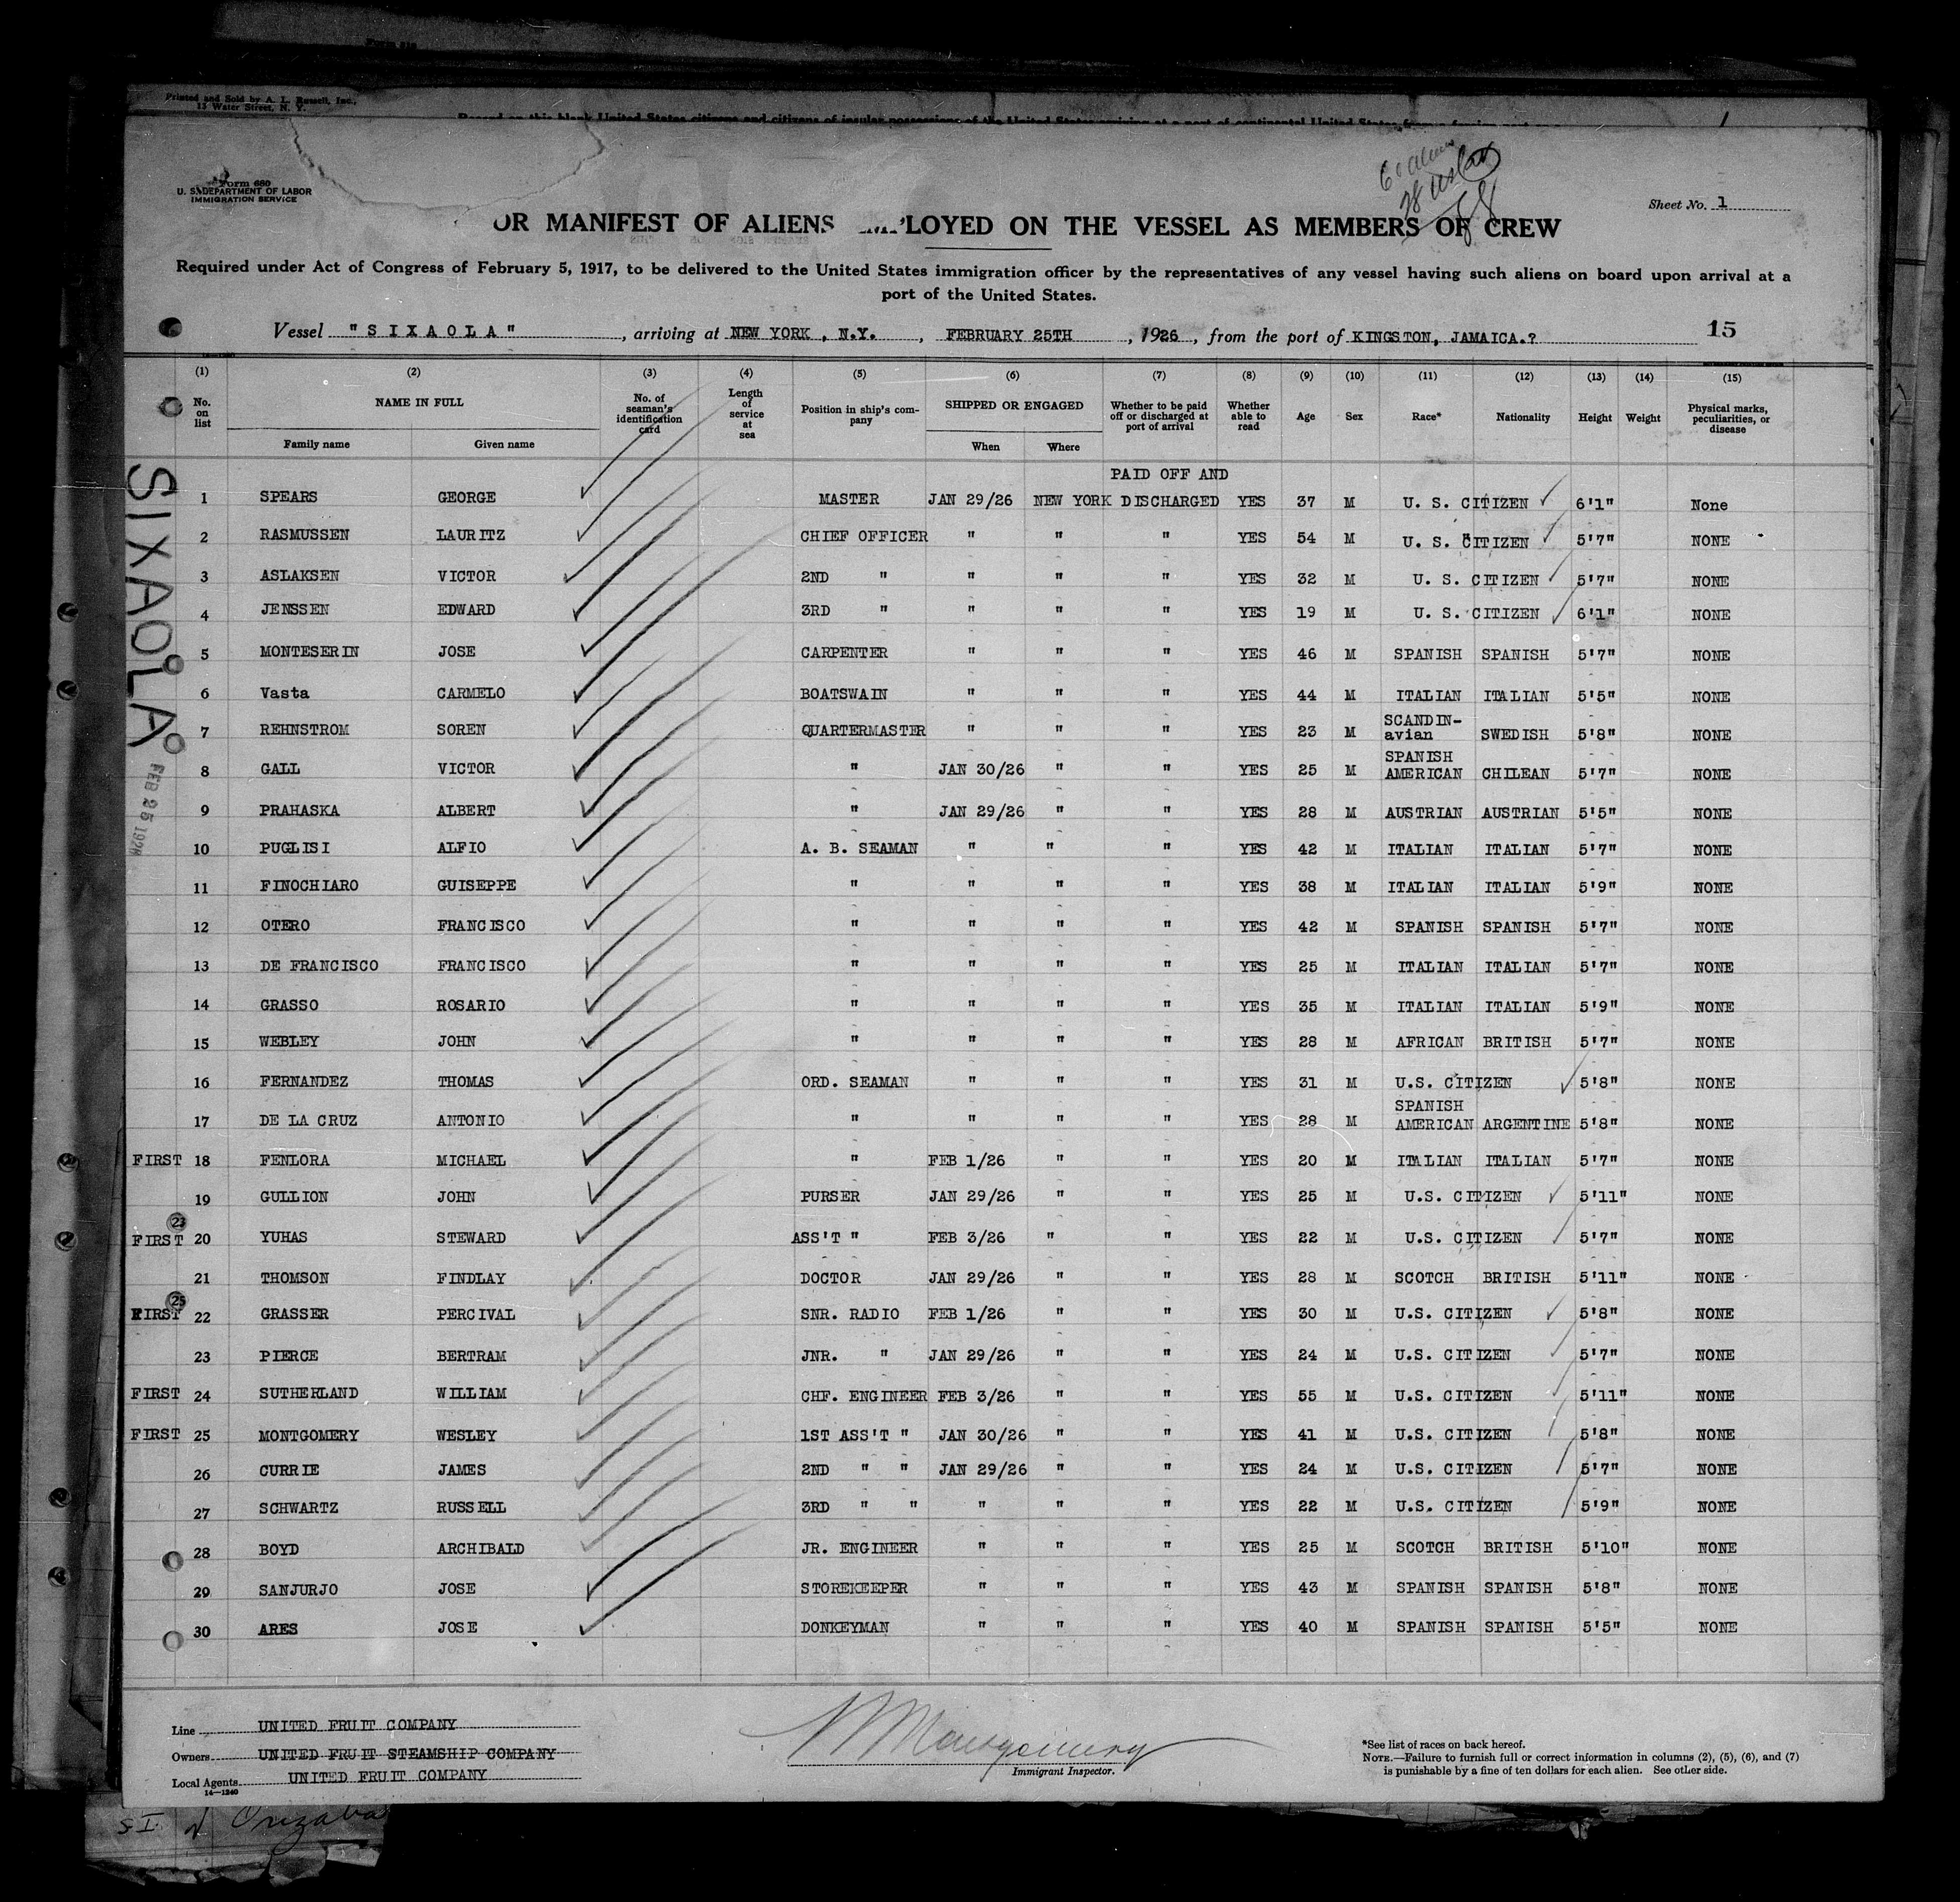 Printed and Sold by A. L. Russell, Inc.,
15 Water Street, N. Y.
Record on this blank United States citizens and citizens of insular possessions of the United States arriving at a port of continental United States from a foreign port
Form 680
U. S. DEPARTMENT OF LABOR
IMMIGRATION SERVICE
Sheet No. 1
OR MANIFEST OF ALIENS EMPLOYED ON THE VESSEL AS MEMBERS OF CREW
Required under Act of Congress of February 5, 1917, to be delivered to the United States immigration officer by the representatives of any vessel having such aliens on board upon arrival at a
port of the United States.
Vessel "SIXAOLA", arriving at NEW YORK, N.Y., FEBRUARY 25TH, 1926, from the port of KINGSTON, JAMAICA.? 15
(1) (2) (3) (4) (5) (6) (7) (8) (9) (10) (11) (12) (13) (14) (15)
No. on list NAME IN FULL Family name Given name No. of seaman's identification card Length of service at sea Position in ship's company SHIPPED OR ENGAGED When Where Whether to be paid off or discharged at port of arrival Whether able to read Age Sex Race* Nationality Height Weight Physical marks, peculiarities, or disease
PAID OFF AND
1 SPEARS GEORGE MASTER JAN 29/26 NEW YORK DISCHARGED YES 37 M U. S. CITIZEN 6'1" None
2 RASMUSSEN LAURITZ CHIEF OFFICER " " " YES 54 M U. S. CITIZEN 5'7" NONE
3 ASLAKSEN VICTOR 2ND " " " " YES 32 M U. S. CITIZEN 5'7" NONE
4 JENSSEN EDWARD 3RD " " " " YES 19 M U. S. CITIZEN 6'1" NONE
5 MONTESERIN JOSE CARPENTER " " " YES 46 M SPANISH SPANISH 5'7" NONE
6 Vasta CARMELO BOATSWAIN " " " YES 44 M ITALIAN ITALIAN 5'5" NONE
7 REHNSTROM SOREN QUARTERMASTER " " " YES 23 M SCANDIN-avian SWEDISH 5'8" NONE
8 GALL VICTOR " JAN 30/26 " " YES 25 M SPANISH AMERICAN CHILEAN 5'7" NONE
9 PRAHASKA ALBERT " JAN 29/26 " " YES 28 M AUSTRIAN AUSTRIAN 5'5" NONE
10 PUGLISI ALFIO A. B. SEAMAN " " " YES 42 M ITALIAN ITALIAN 5'7" NONE
11 FINOCHIARO GUISEPPE " " " " YES 38 M ITALIAN ITALIAN 5'9" NONE
12 OTERO FRANCISCO " " " " YES 42 M SPANISH SPANISH 5'7" NONE
13 DE FRANCISCO FRANCISCO " " " " YES 25 M ITALIAN ITALIAN 5'7" NONE
14 GRASSO ROSARIO " " " " YES 35 M ITALIAN ITALIAN 5'9" NONE
15 WEBLEY JOHN " " " " YES 28 M AFRICAN BRITISH 5'7" NONE
16 FERNANDEZ THOMAS ORD. SEAMAN " " " YES 31 M U.S. CITIZEN 5'8" NONE
17 DE LA CRUZ ANTONIO " " " " YES 28 M SPANISH AMERICAN ARGENTINE 5'8" NONE
FIRST 18 FENLORA MICHAEL " FEB 1/26 " " YES 20 M ITALIAN ITALIAN 5'7" NONE
19 GULLION JOHN PURSER JAN 29/26 " " YES 25 M U.S. CITIZEN 5'11" NONE
23
FIRST 20 YUHAS STEWARD ASS'T " FEB 3/26 " " YES 22 M U.S. CITIZEN 5'7" NONE
21 THOMSON FINDLAY DOCTOR JAN 29/26 " " YES 28 M SCOTCH BRITISH 5'11" NONE
25
FIRST 22 GRASSER PERCIVAL SNR. RADIO FEB 1/26 " " YES 30 M U.S. CITIZEN 5'8" NONE
23 PIERCE BERTRAM JNR. " JAN 29/26 " " YES 24 M U.S. CITIZEN 5'7" NONE
FIRST 24 SUTHERLAND WILLIAM CHF. ENGINEER FEB 3/26 " " YES 55 M U.S. CITIZEN 5'11" NONE
FIRST 25 MONTGOMERY WESLEY 1ST ASS'T " JAN 30/26 " " YES 41 M U.S. CITIZEN 5'8" NONE
26 CURRIE JAMES 2ND " " JAN 29/26 " " YES 24 M U.S. CITIZEN 5'7" NONE
27 SCHWARTZ RUSSELL 3RD " " " " " YES 22 M U.S. CITIZEN 5'9" NONE
28 BOYD ARCHIBALD JR. ENGINEER " " " YES 25 M SCOTCH BRITISH 5'10" NONE
29 SANJURJO JOSE STOREKEEPER " " " YES 43 M SPANISH SPANISH 5'8" NONE
30 ARES JOSE DONKEYMAN " " " YES 40 M SPANISH SPANISH 5'5" NONE
SIXAOLA
FEB 25 1926
Line UNITED FRUIT COMPANY
Owners UNITED FRUIT STEAMSHIP COMPANY
Local Agents UNITED FRUIT COMPANY
14—1240
Montgomery
Immigrant Inspector.
*See list of races on back hereof.
NOTE.—Failure to furnish full or correct information in columns (2), (5), (6), and (7)
is punishable by a fine of ten dollars for each alien. See other side.
S.I. Orizaba